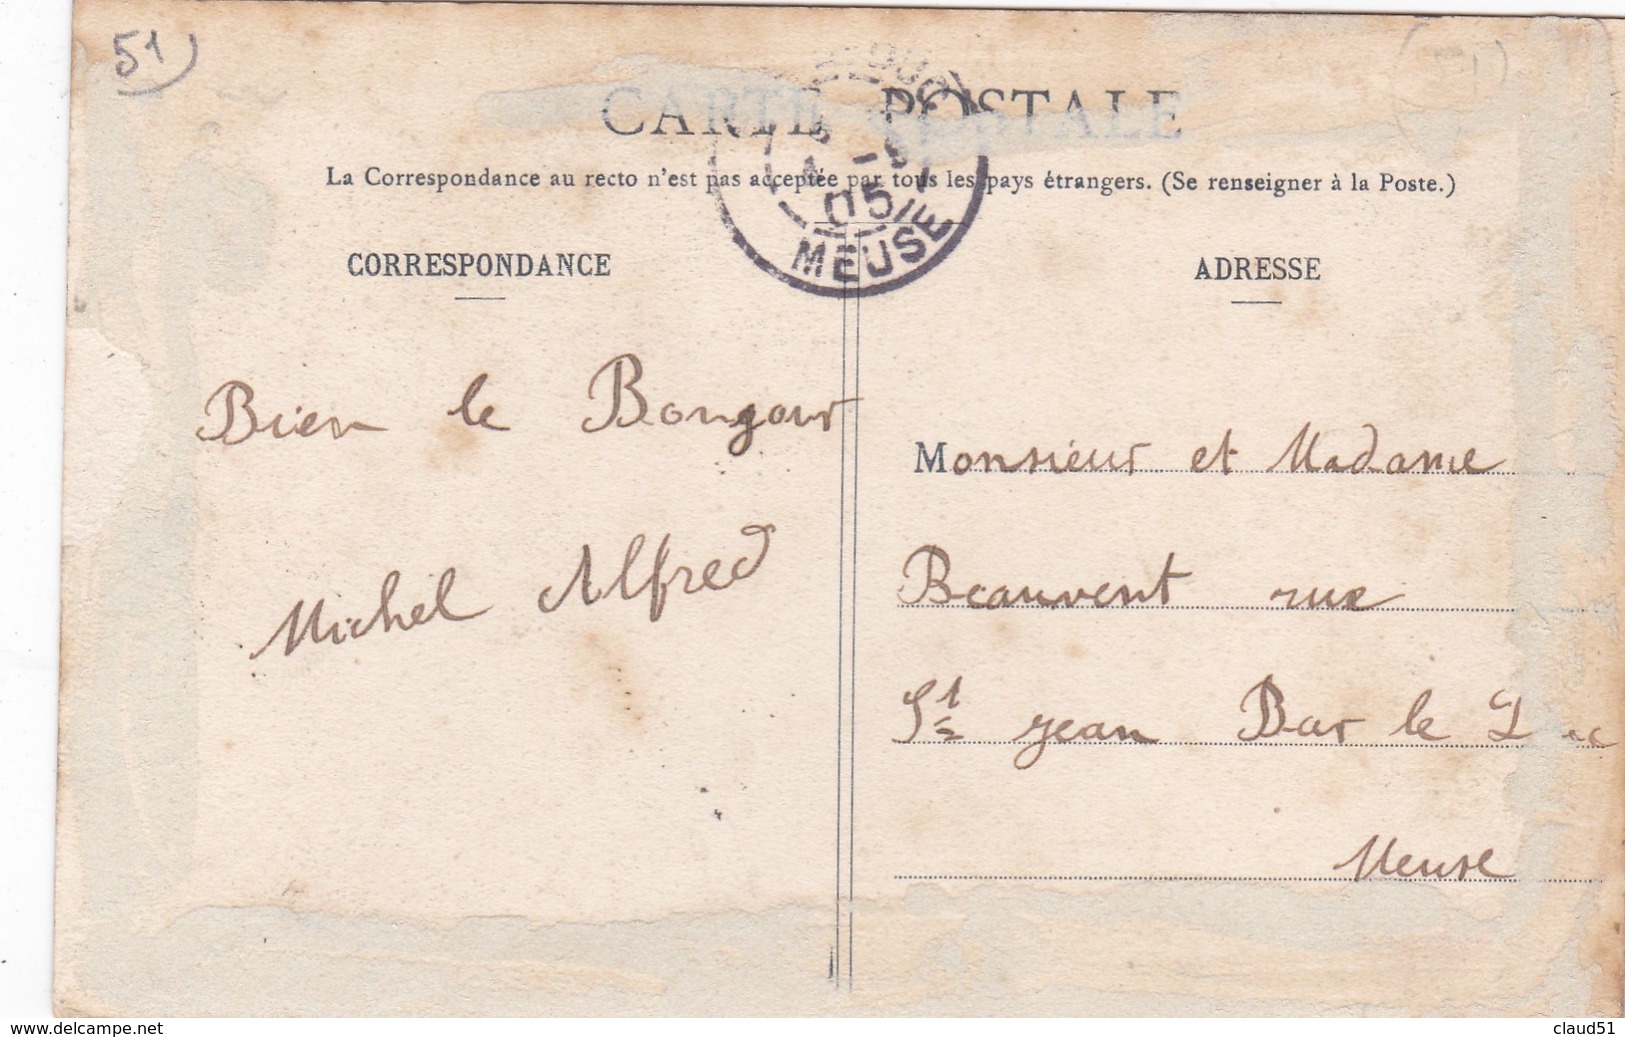 51
CARTE POSTALE
La Correspondance au recto n'est pas acceptée par tous les pays étrangers. (Se renseigner à la Poste.)
05
MEUSE
CORRESPONDANCE
Bien le Bongour
Michel Alfred
ADRESSE
Monsieur et Madame
Beauvent rue
St Jean Bar le Duc
Meuse
www.delcampe.net
claud51